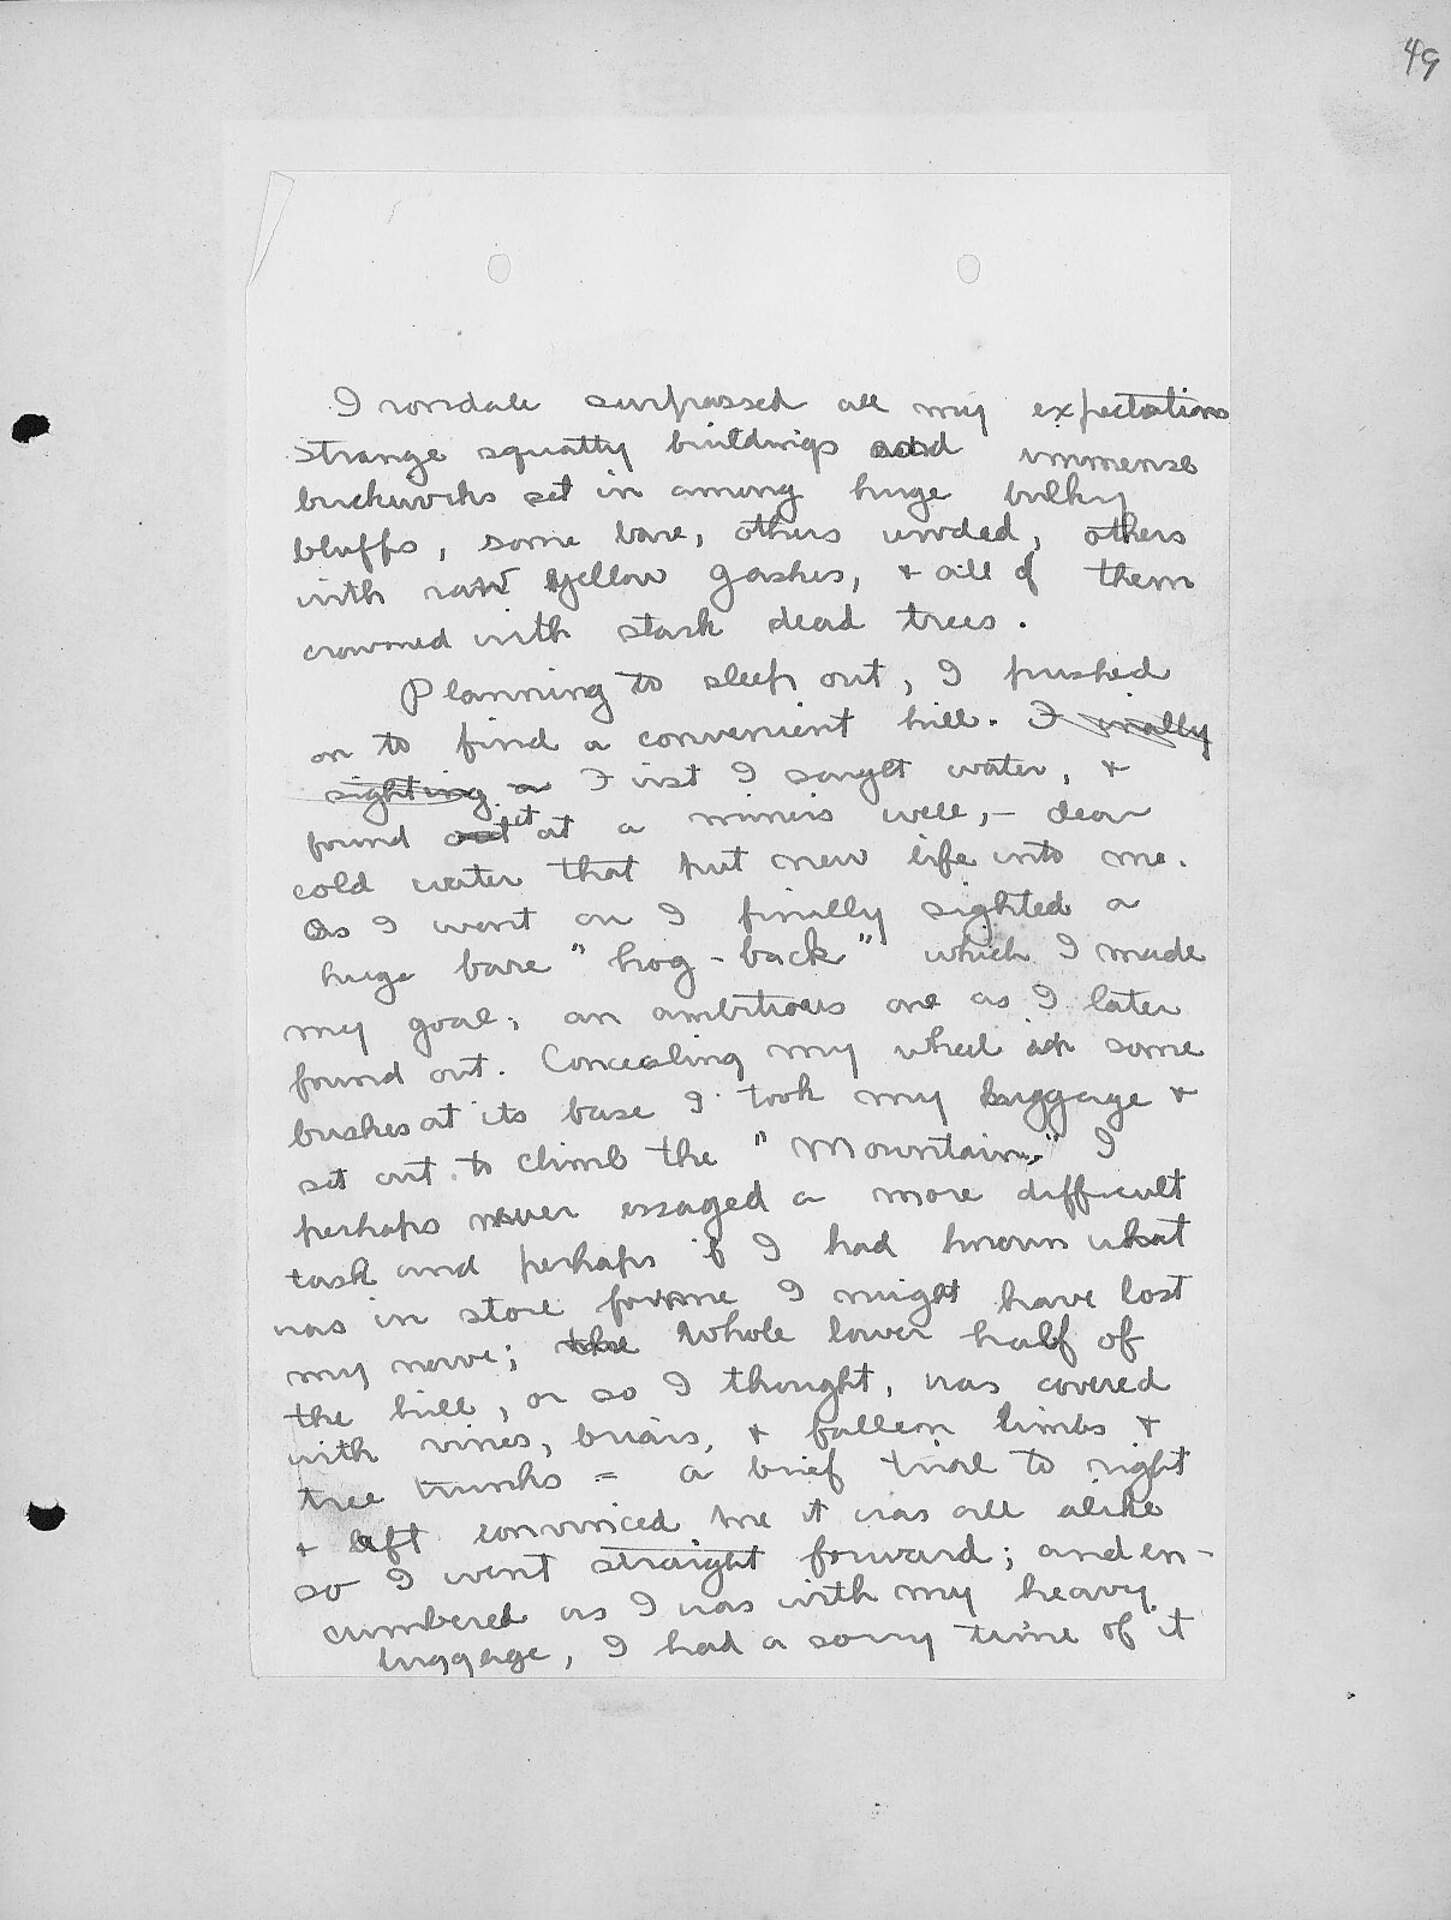 49
Irondale surpassed all my expectations
strange squatty buildings and immense
brickworks set in among huge bulky
bluffs, some bare, others wooded, others
with raw yellow gashes, & all of them
crowned with stark dead trees.
Planning to sleep out, I pushed
on to find a convenient hill. Finally
sighting a First I sought water, &
found out it at a miners well, - clear
cold water that put new life into me.
As I went on I finally sighted a
huge bare "hog-back" which I made
my goal; an ambitious one as I later
found out. Concealing my wheel in some
bushes at its base I took my luggage &
set out to climb the "Mountain." I
perhaps never essayed a more difficult
task and perhaps if I had known what
was in store for me I might have lost
my nerve; the whole lower half of
the hill, or so I thought, was covered
with vines, briars, & fallen limbs &
tree trunks = a brief trial to right
& left convinced me it was all alike
so I went straight forward; and en-
cumbered as I was with my heavy
luggage, I had a sorry time of it